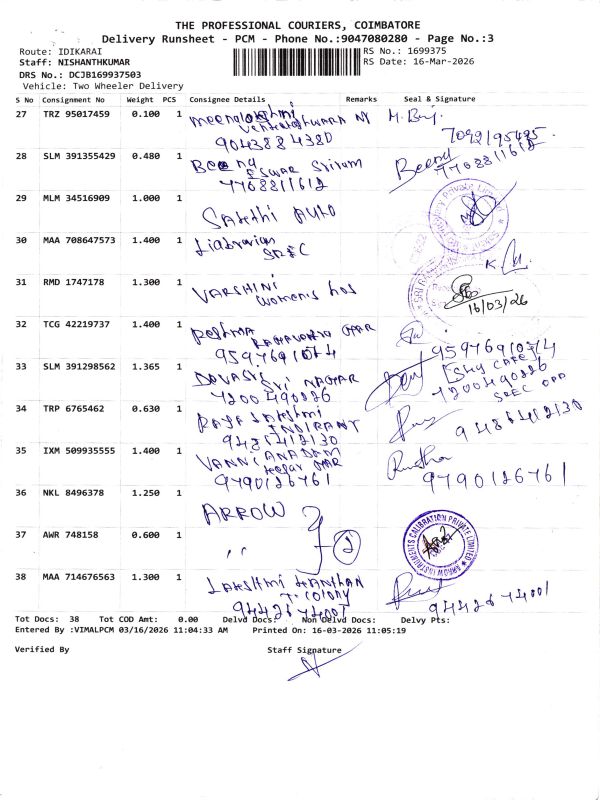 THE PROFESSIONAL COURIERS, COIMBATORE
Delivery Runsheet - PCM - Phone No.:9047080280 - Page No.:3
Route: IDIKARAI
RS No.: 1699375
Staff: NISHANTHKUMAR
RS Date: 16-Mar-2026
DRS No.: DCJB169937503
Vehicle: Two Wheeler Delivery
S No Consignment No Weight PCS Consignee Details Remarks Seal & Signature
27 TRZ 95017459 0.100 1
9043884380
28 SLM 391355429 0.480 1 Beena Beena
Eswar Sriram 7708811612
7708811612
29 MLM 34516909 1.000 1
Sakthi Auto
30 MAA 708647573 1.400 1
SREC
31 RMD 1747178 1.300 1
VARSHINI
womens hos
16/03/26
32 TCG 42219737 1.400 1
9597691074 9597691074
33 SLM 391298562 1.365 1
Sri NAGAR
7200490826 7200490826
34 TRP 6765462 0.630 1
Rajalakshmi
9486412130 9486412130
35 IXM 509935555 1.400 1
9790126761 9790126761
36 NKL 8496378 1.250 1
ARROW
37 AWR 748158 0.600 1
,, 2
ARROW INSTRUMENTS CALIBRATION PRIVATE LIMITED
38 MAA 714676563 1.300 1
Lakshmi Kanthan
T. Colony
9442674001 9442674001
Tot Docs: 38 Tot COD Amt: 0.00 Delvd Docs: Non Delvd Docs: Delvy Pts:
Entered By :VIMALPCM 03/16/2026 11:04:33 AM Printed On: 16-03-2026 11:05:19
Verified By Staff Signature